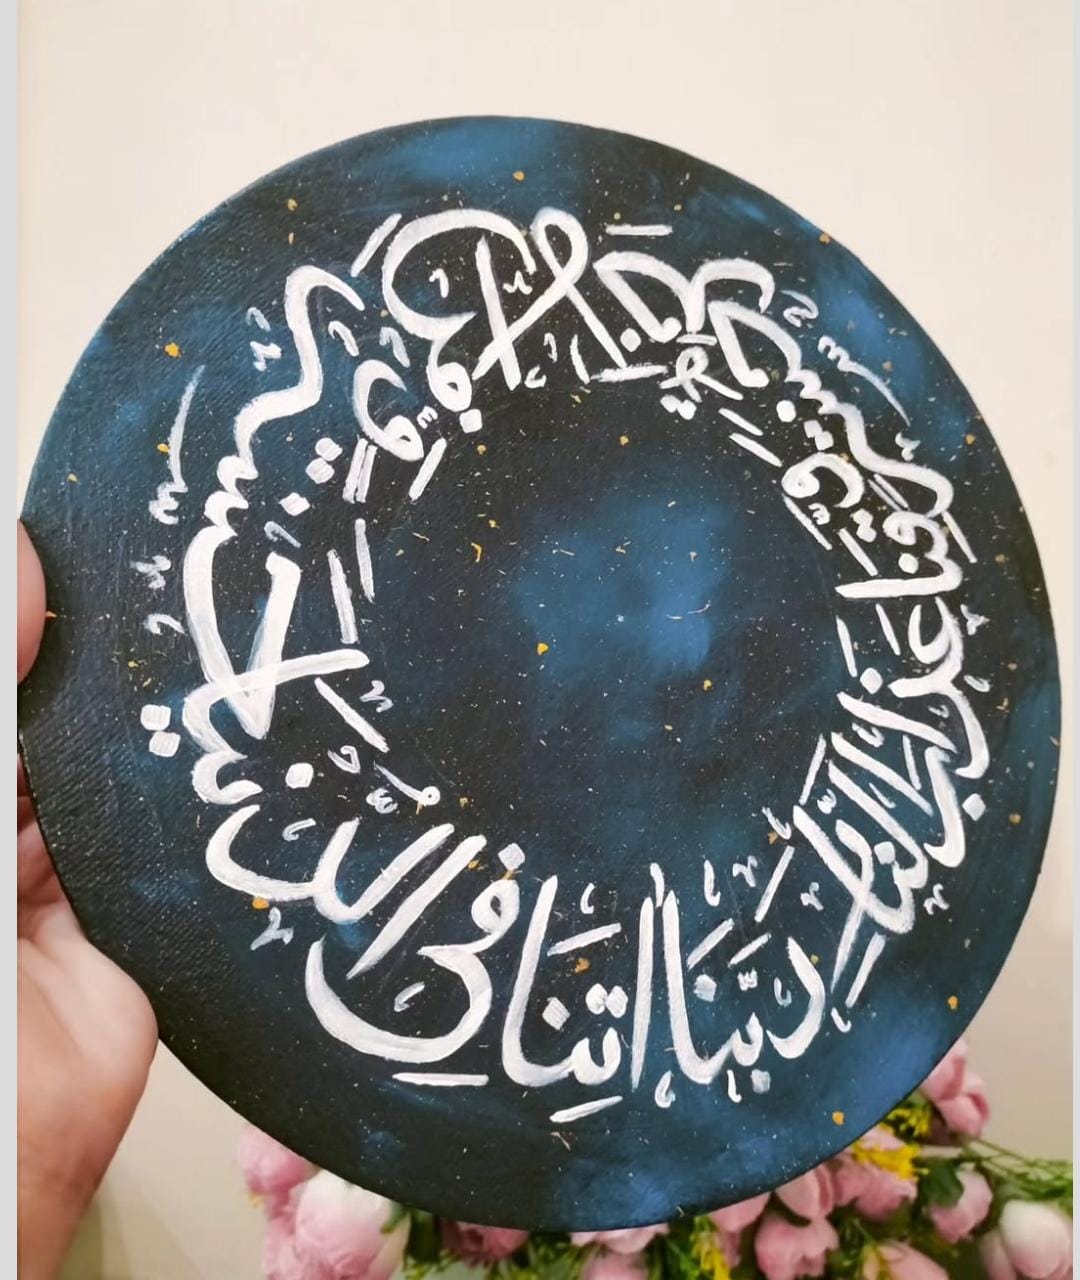 ربنا اتنا في الدنيا حسنة وفي الاخرة حسنة وقنا عذاب النار